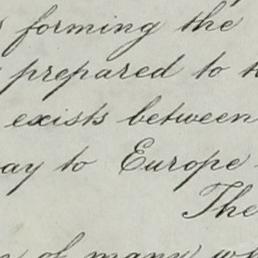 forming the
prepared to
exists between
to Europe
The
of many